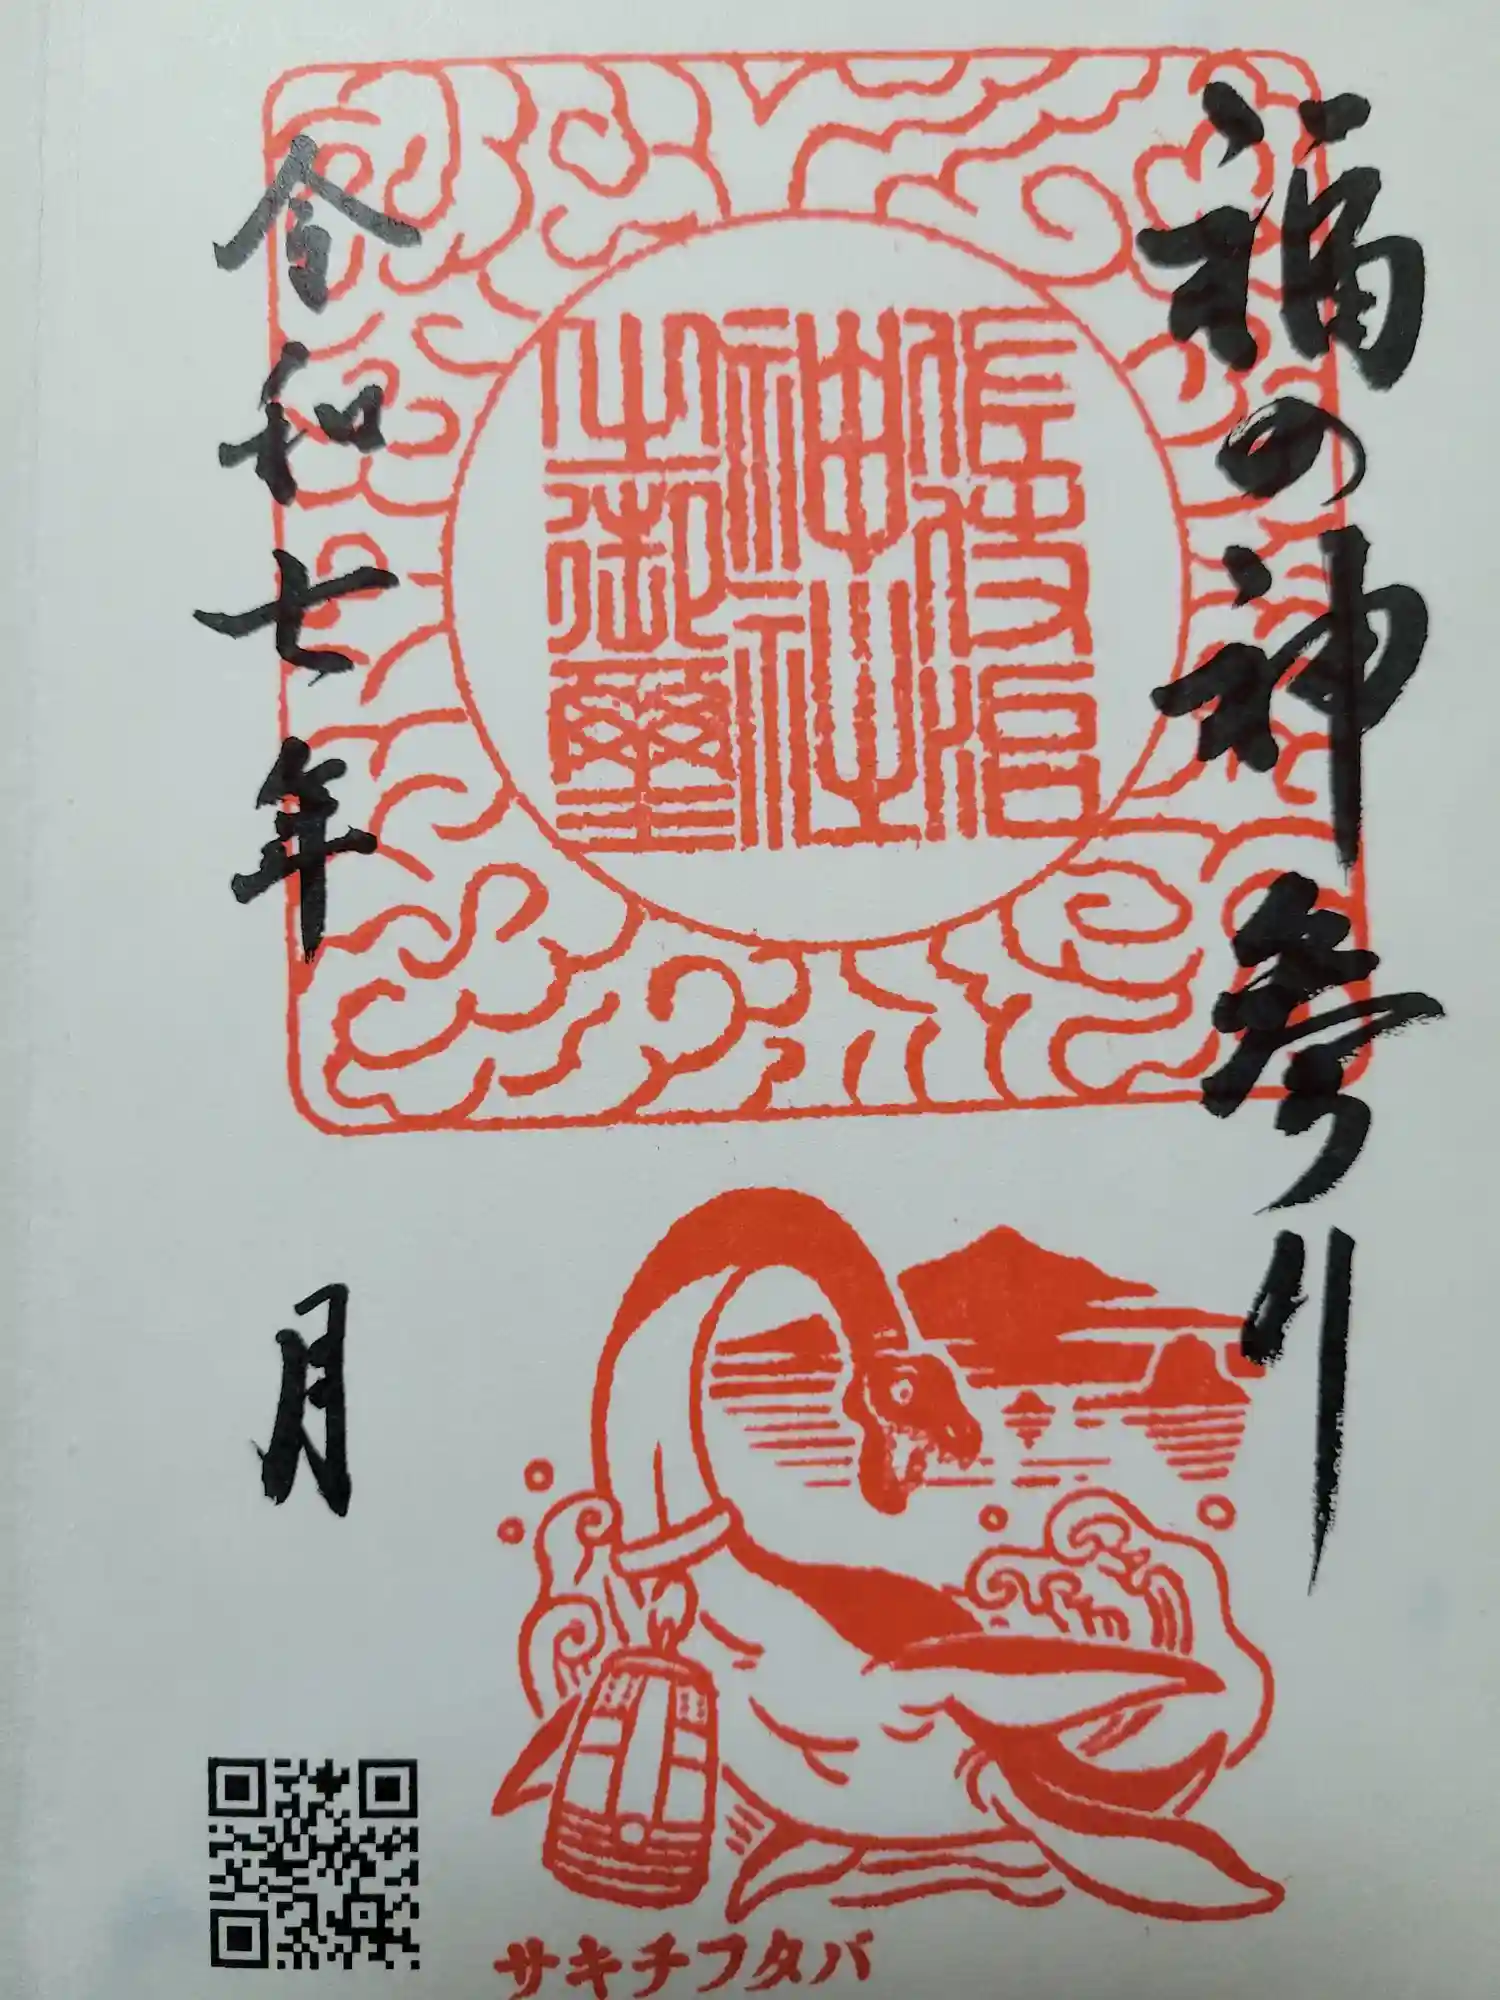 福の神参り
神社
之御璽
令和七年　月
サキチフタバ